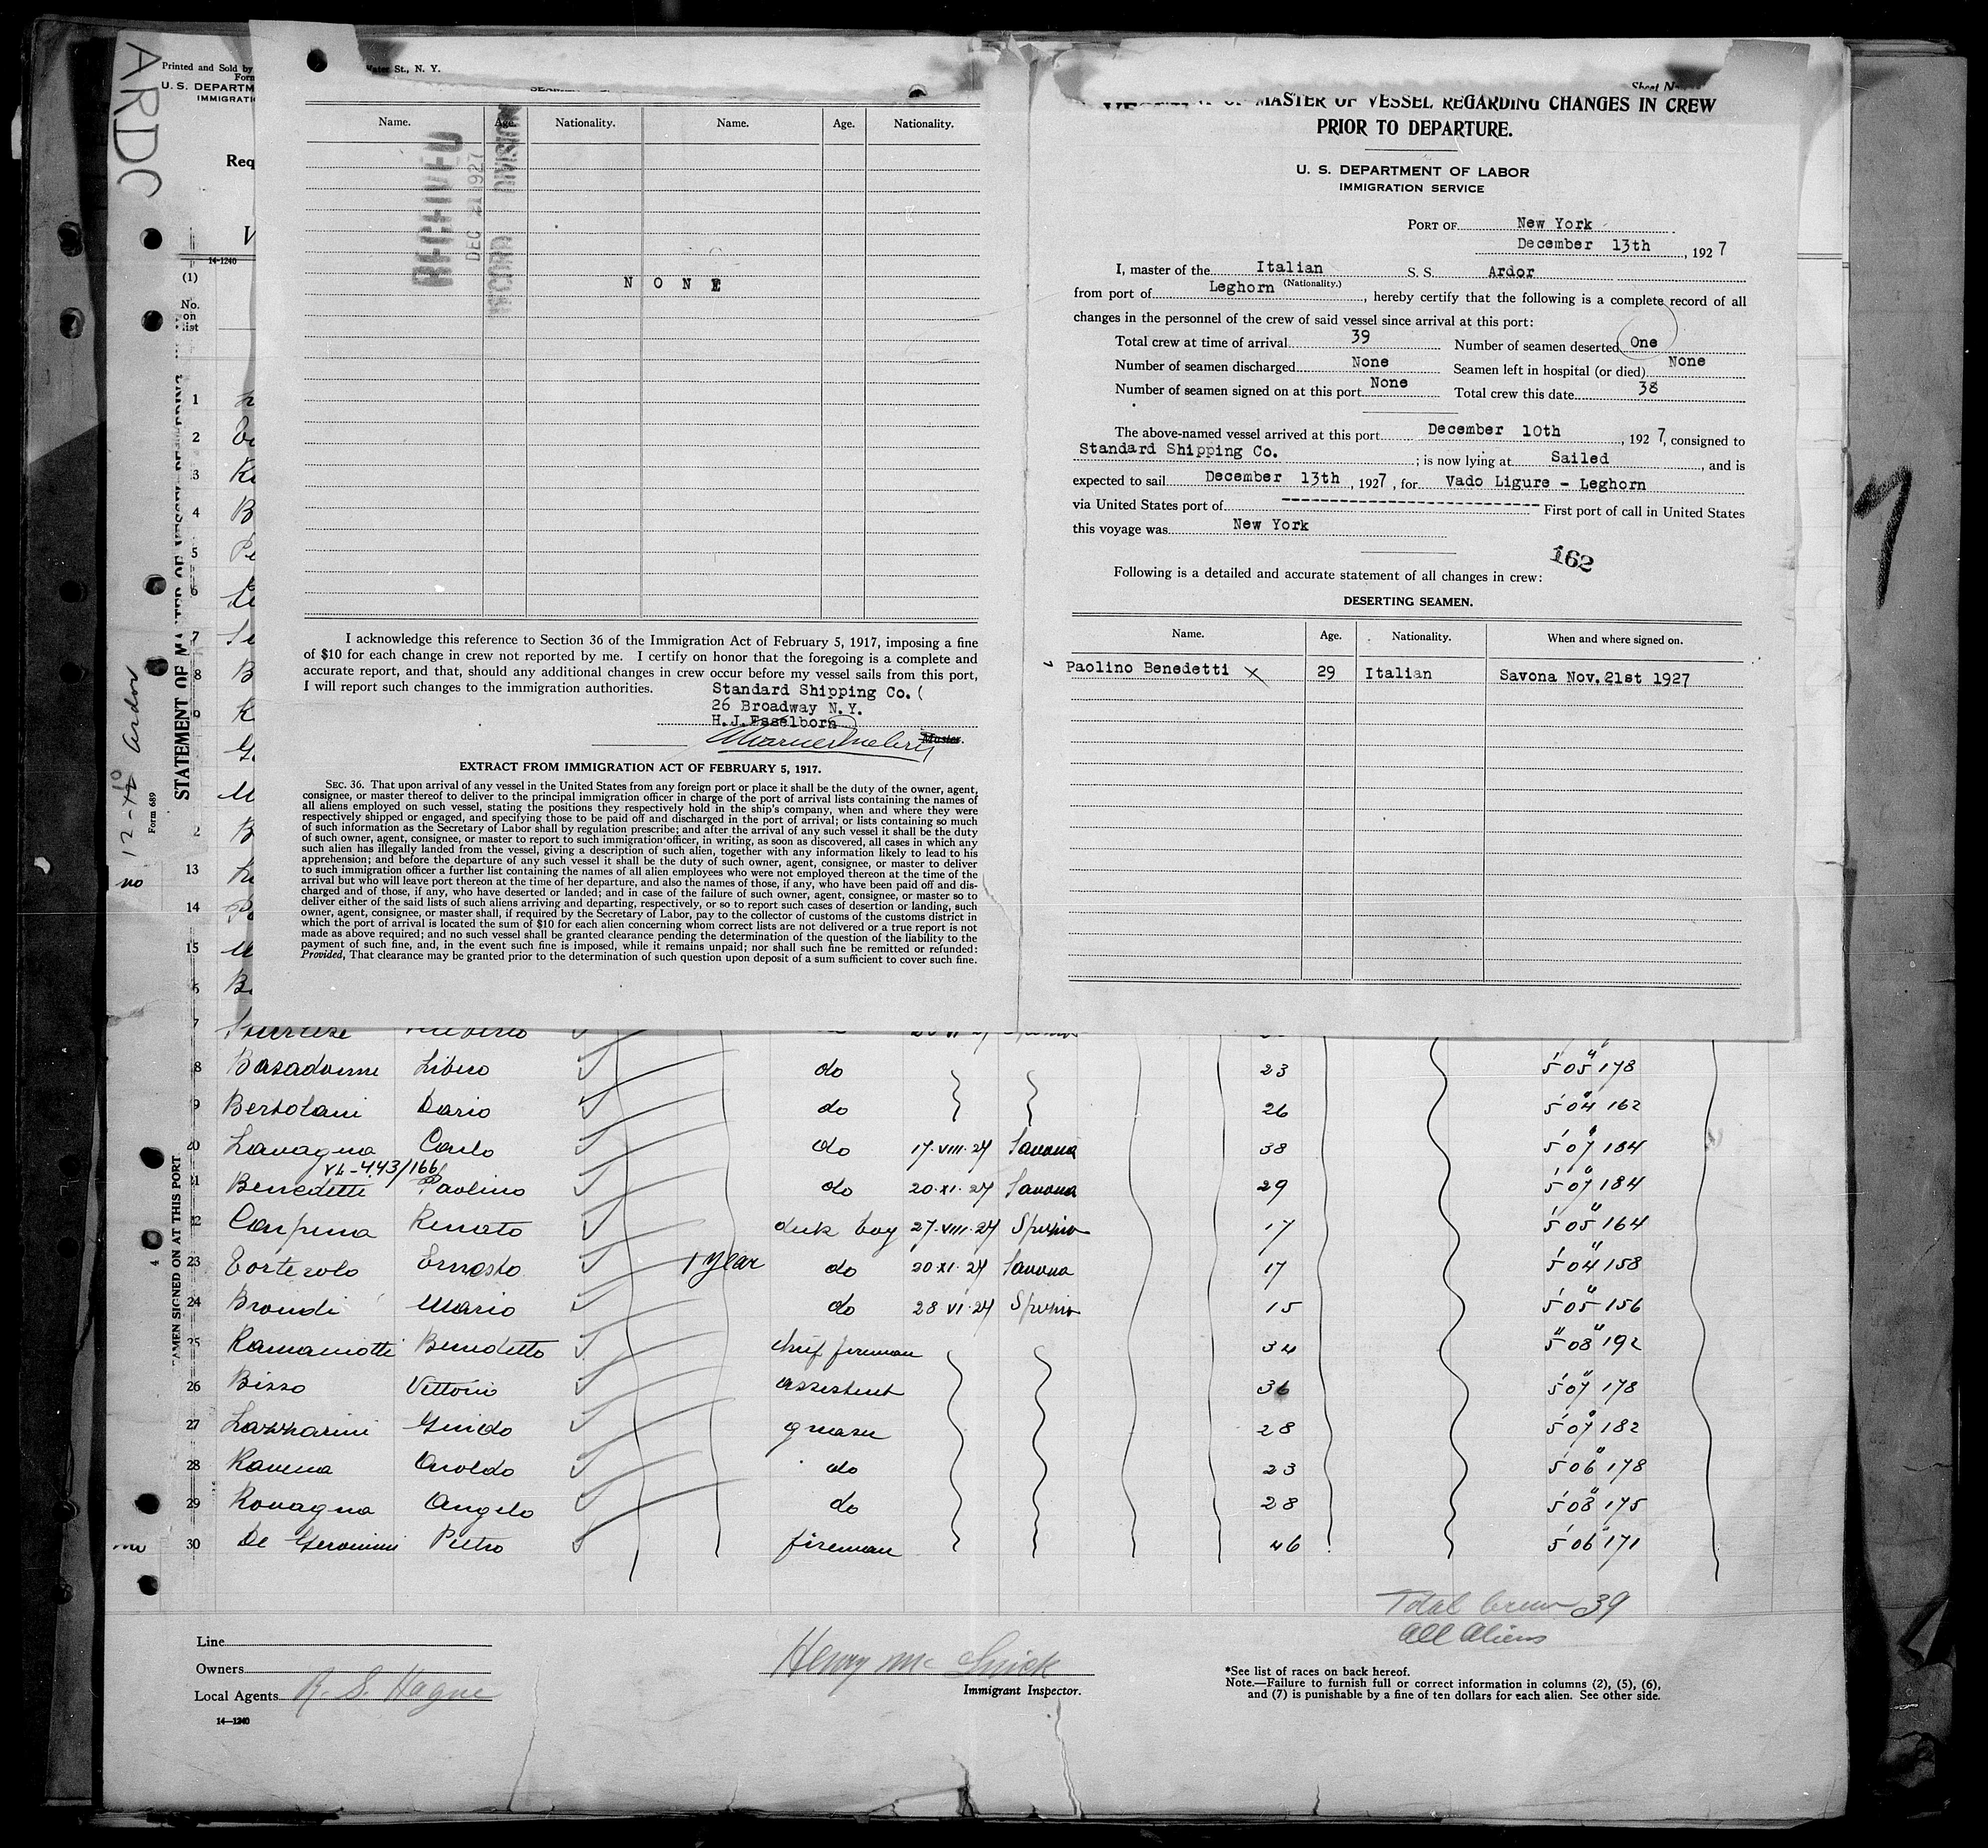 ARDO
Printed and Sold by
Form
U. S. DEPARTM
IMMIGRATI
Req
V
14-1240
(1)
No.
on
list
12-10 Ardor
Form 689
STATEMENT OF MASTER OF VESSEL REGARDING
SEAMEN SIGNED ON AT THIS PORT
Water St., N. Y.
Name. Age. Nationality. Name. Age. Nationality.
RECEIVED
DEC 21 1927
RECORD DIVISION
NONE
I acknowledge this reference to Section 36 of the Immigration Act of February 5, 1917, imposing a fine
of $10 for each change in crew not reported by me. I certify on honor that the foregoing is a complete and
accurate report, and that, should any additional changes in crew occur before my vessel sails from this port,
I will report such changes to the immigration authorities.
Standard Shipping Co.
26 Broadway N.Y.
H.J.Esselborn
Master.
EXTRACT FROM IMMIGRATION ACT OF FEBRUARY 5, 1917.
SEC. 36. That upon arrival of any vessel in the United States from any foreign port or place it shall be the duty of the owner, agent,
consignee, or master thereof to deliver to the principal immigration officer in charge of the port of arrival lists containing the names of
all aliens employed on such vessel, stating the positions they respectively hold in the ship's company, when and where they were
respectively shipped or engaged, and specifying those to be paid off and discharged in the port of arrival; or lists containing so much
of such information as the Secretary of Labor shall by regulation prescribe; and after the arrival of any such vessel it shall be the duty
of such owner, agent, consignee, or master to report to such immigration officer, in writing, as soon as discovered, all cases in which any
such alien has illegally landed from the vessel, giving a description of such alien, together with any information likely to lead to his
apprehension; and before the departure of any such vessel it shall be the duty of such owner, agent, consignee, or master to deliver
to such immigration officer a further list containing the names of all alien employees who were not employed thereon at the time of the
arrival but who will leave port thereon at the time of her departure, and also the names of those, if any, who have been paid off and dis-
charged and of those, if any, who have deserted or landed; and in case of the failure of such owner, agent, consignee, or master so to
deliver either of the said lists of such aliens arriving and departing, respectively, or so to report such cases of desertion or landing, such
owner, agent, consignee, or master shall, if required by the Secretary of Labor, pay to the collector of customs of the customs district in
which the port of arrival is located the sum of $10 for each alien concerning whom correct lists are not delivered or a true report is not
made as above required; and no such vessel shall be granted clearance pending the determination of the question of the liability to the
payment of such fine, and, in the event such fine is imposed, while it remains unpaid; nor shall such fine be remitted or refunded:
Provided, That clearance may be granted prior to the determination of such question upon deposit of a sum sufficient to cover such fine.
Sheet No.
OF MASTER OF VESSEL REGARDING CHANGES IN CREW
PRIOR TO DEPARTURE.
U. S. DEPARTMENT OF LABOR
IMMIGRATION SERVICE
PORT OF New York
December 13th, 1927
I, master of the Italian S. S. Ardor
(Nationality.)
from port of Leghorn, hereby certify that the following is a complete record of all
changes in the personnel of the crew of said vessel since arrival at this port:
Total crew at time of arrival 39 Number of seamen deserted One
Number of seamen discharged None Seamen left in hospital (or died) None
Number of seamen signed on at this port None Total crew this date 38
The above-named vessel arrived at this port December 10th, 1927, consigned to
Standard Shipping Co.; is now lying at Sailed, and is
expected to sail December 13th, 1927, for Vado Ligure - Leghorn
via United States port of -------------------- First port of call in United States
this voyage was New York
162
Following is a detailed and accurate statement of all changes in crew:
DESERTING SEAMEN.
Name. Age. Nationality. When and where signed on.
Paolino Benedetti X 29 Italian Savona Nov. 21st 1927
1
2
3
4 B
5
6
7
8 B
9 K
2 B
no 13
14
15
5
7
8 Basadonne Libero do 23 5' 05" 178
9 Bertolani Dario do 26 5' 04" 162
20 Lavagna Carlo do 17.VIII.27 Savona 38 5' 07" 184
VL-443/166
21 Benedetti Paolino do 20.XI.27 Savona 29 5' 07" 184
22 Carpena Renato deck boy 27.VIII.27 Spezia 17 5' 05" 164
23 Tortorolo Ernesto 1 year do 20 XI.27 Savona 17 5' 04" 158
24 Brondi Mario do 28 VI.27 Spezia 15 5' 05" 156
25 Ramainotti Benedetto chief fireman 34 5" 08" 192
26 Bisso Vittorio assistent 36 5' 07" 178
27 Lazzarini Guido greaser 28 5' 07" 182
28 Ravena Aroldo do 23 5' 06" 178
29 Rovagna Angelo do 28 5' 08" 175
no 30 De Geronimi Pietro fireman 46 5' 06" 171
Total Crew 39
All Aliens
Line
Owners
Local Agents R. S. Hague
14-1240
Henry Mc
Immigrant Inspector.
*See list of races on back hereof.
Note.—Failure to furnish full or correct information in columns (2), (5), (6),
and (7) is punishable by a fine of ten dollars for each alien. See other side.